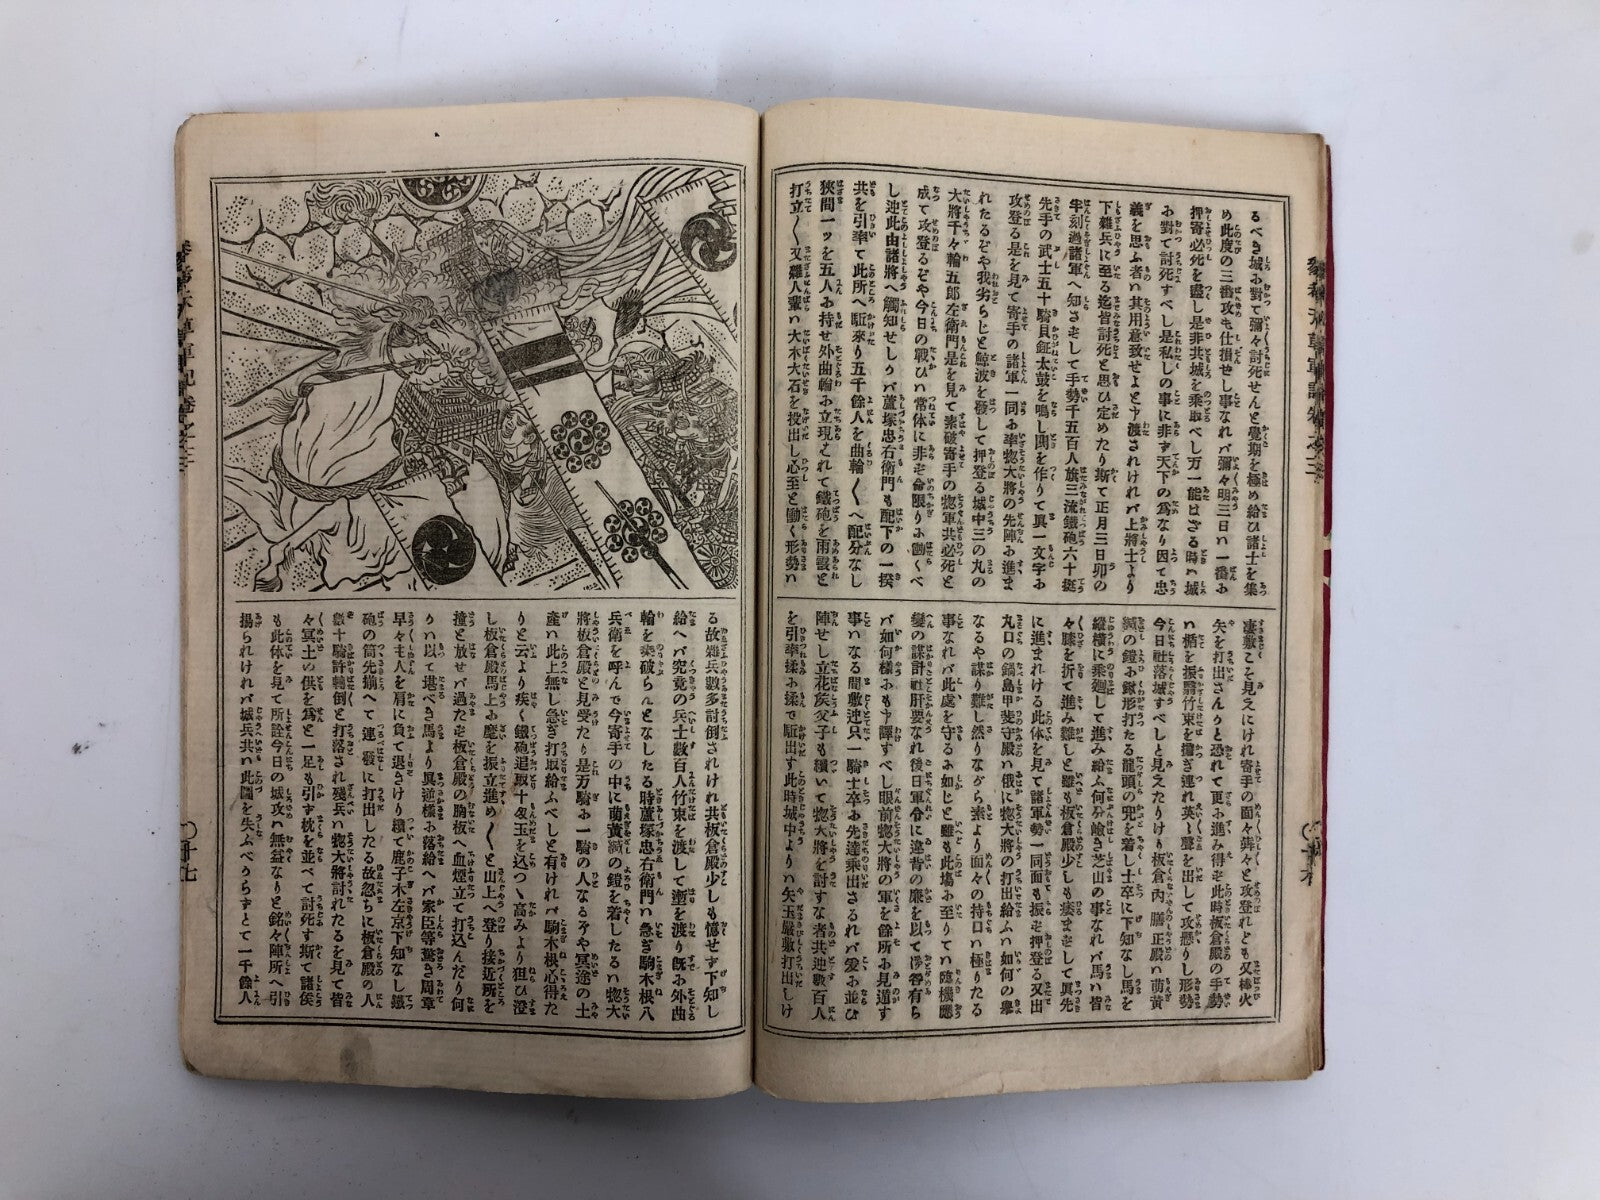 るべき城に對て彌々討死せんと覺期を極め給ひ諸士を集
め此度の三番攻も仕損せし事なれバ彌々明三日ハ一番に
押寄必死を盡し是非共城を乘取べし万一能はざる時ハ城
に對て討死すべし是私しの事に非ず天下の爲なり因て忠
義を思ふ者ハ其用意致せよと申渡されけれバ上將士より
下雜兵に至る迄皆討死と思ひ定めたり斯て正月三日卯の
半刻過諸軍へ知さずして手勢千五百人旗三流鐵砲六十挺
先手の武士五十騎貝鉦太鼓を鳴し鬨を作りて眞一文字に
攻登る是を見て寄手の諸軍一同に率惣大將の先陣に進ま
れたるぞや我劣らじと鯨波を發して押登る城中三の丸の
大將千々輪五郎左衛門是を見て素破寄手の惣軍共必死と
成て攻登るぞや今日の戰ひハ常体に非ず命限りに働くべ
し迚此由諸將へ觸知せしかバ蘆塚忠右衛門も配下の一揆
共を引率て此所へ駈來り五千餘人を曲輪〱へ配分なし
狹間一ッを五人に持せ外曲輪に立現されて鐵砲を雨霰と
打立〱又雜人輩ハ大木大石を投出し心至と働く形勢ハ
凄敷こそ見えにけれ寄手の面々犇々と攻登れども又棒火
矢を打出さんかと恐れて更に進み得ず此時板倉殿の手勢
ハ楯を振翳竹束を擔ぎ連れ英〱聲を出して攻懸りし形勢
今日社落城すべしと見えたりけり板倉内膳正殿ハ萌黄
縅の鎧に鍬形打たる龍頭の兜を着し士卒に下知なし馬を
縱橫に乘廻して進み給ふ何分嶮き芝山の事なれバ馬ハ皆
々膝を折て進み難しと雖も板倉殿少しも痿まずして眞先
に進まれける此体を見て諸軍勢一同面も振ず押登る又出
丸口の鍋島甲斐守殿ハ俄に惣大將の打出給ふハ如何の擧
なるや謀り難し然りながら素より面々の持口ハ極りたる
事なれバ此處を守るに如じと雖も此塲に至りてハ臨機應
變の謀計社肝要なれ後日軍令に違背の廉を以て御咎有ら
バ如何樣にも申譯すべし眼前惣大將の軍を餘所に見遁す
事ハなる間敷速只一騎士卒に先達乘出さるれバ爰に並び
陣せし立花矦父子も續いて惣大將を討すな者共迚數百人
を引率揉に揉で駈出す此時城中よりハ矢玉嚴敷打出しけ
る故雜兵數多討倒されけれ共板倉殿少しも憶せず下知し
給へバ究竟の兵士數百人竹束を渡して壍を渡り既に外曲
輪を乘破らんとなしたる時蘆塚忠右衛門ハ急ぎ駒木根八
兵衛を呼んで今寄手の中に萌黄縅の鎧を着したるハ惣大
將板倉殿と見受たり是万騎に一騎の人なるぞや冥途の土
產ハ此上無し急ぎ打取給ふべしと有けれバ駒木根心得た
りと云より疾く鐵砲追取十匁玉を込つゝ高みより狙ひ澄
し板倉殿馬上に麾を振立進め〱と山上へ登り接近所を
撞と放せバ過たず板倉殿の胸板へ血煙立て打込んだり何
かハ以て堪べき馬より眞逆樣に落給へバ家臣等驚き周章
早々主人を肩に負て退きけり續て鹿子木左京下知なし鐵
砲の筒先揃へて連發に打出したる故忽ちに板倉殿の人
數十騎許轉倒と打落され殘兵ハ惣大將討れたるを見て皆
々冥土の供を爲と一足も引ず枕を並べて討死す斯て諸矦
も此体を見て所詮今日の城攻ハ無益なりと銘々陣所へ引
揚られけれバ城兵共ハ此圖を失ふべからずとて一千餘人
〇十七